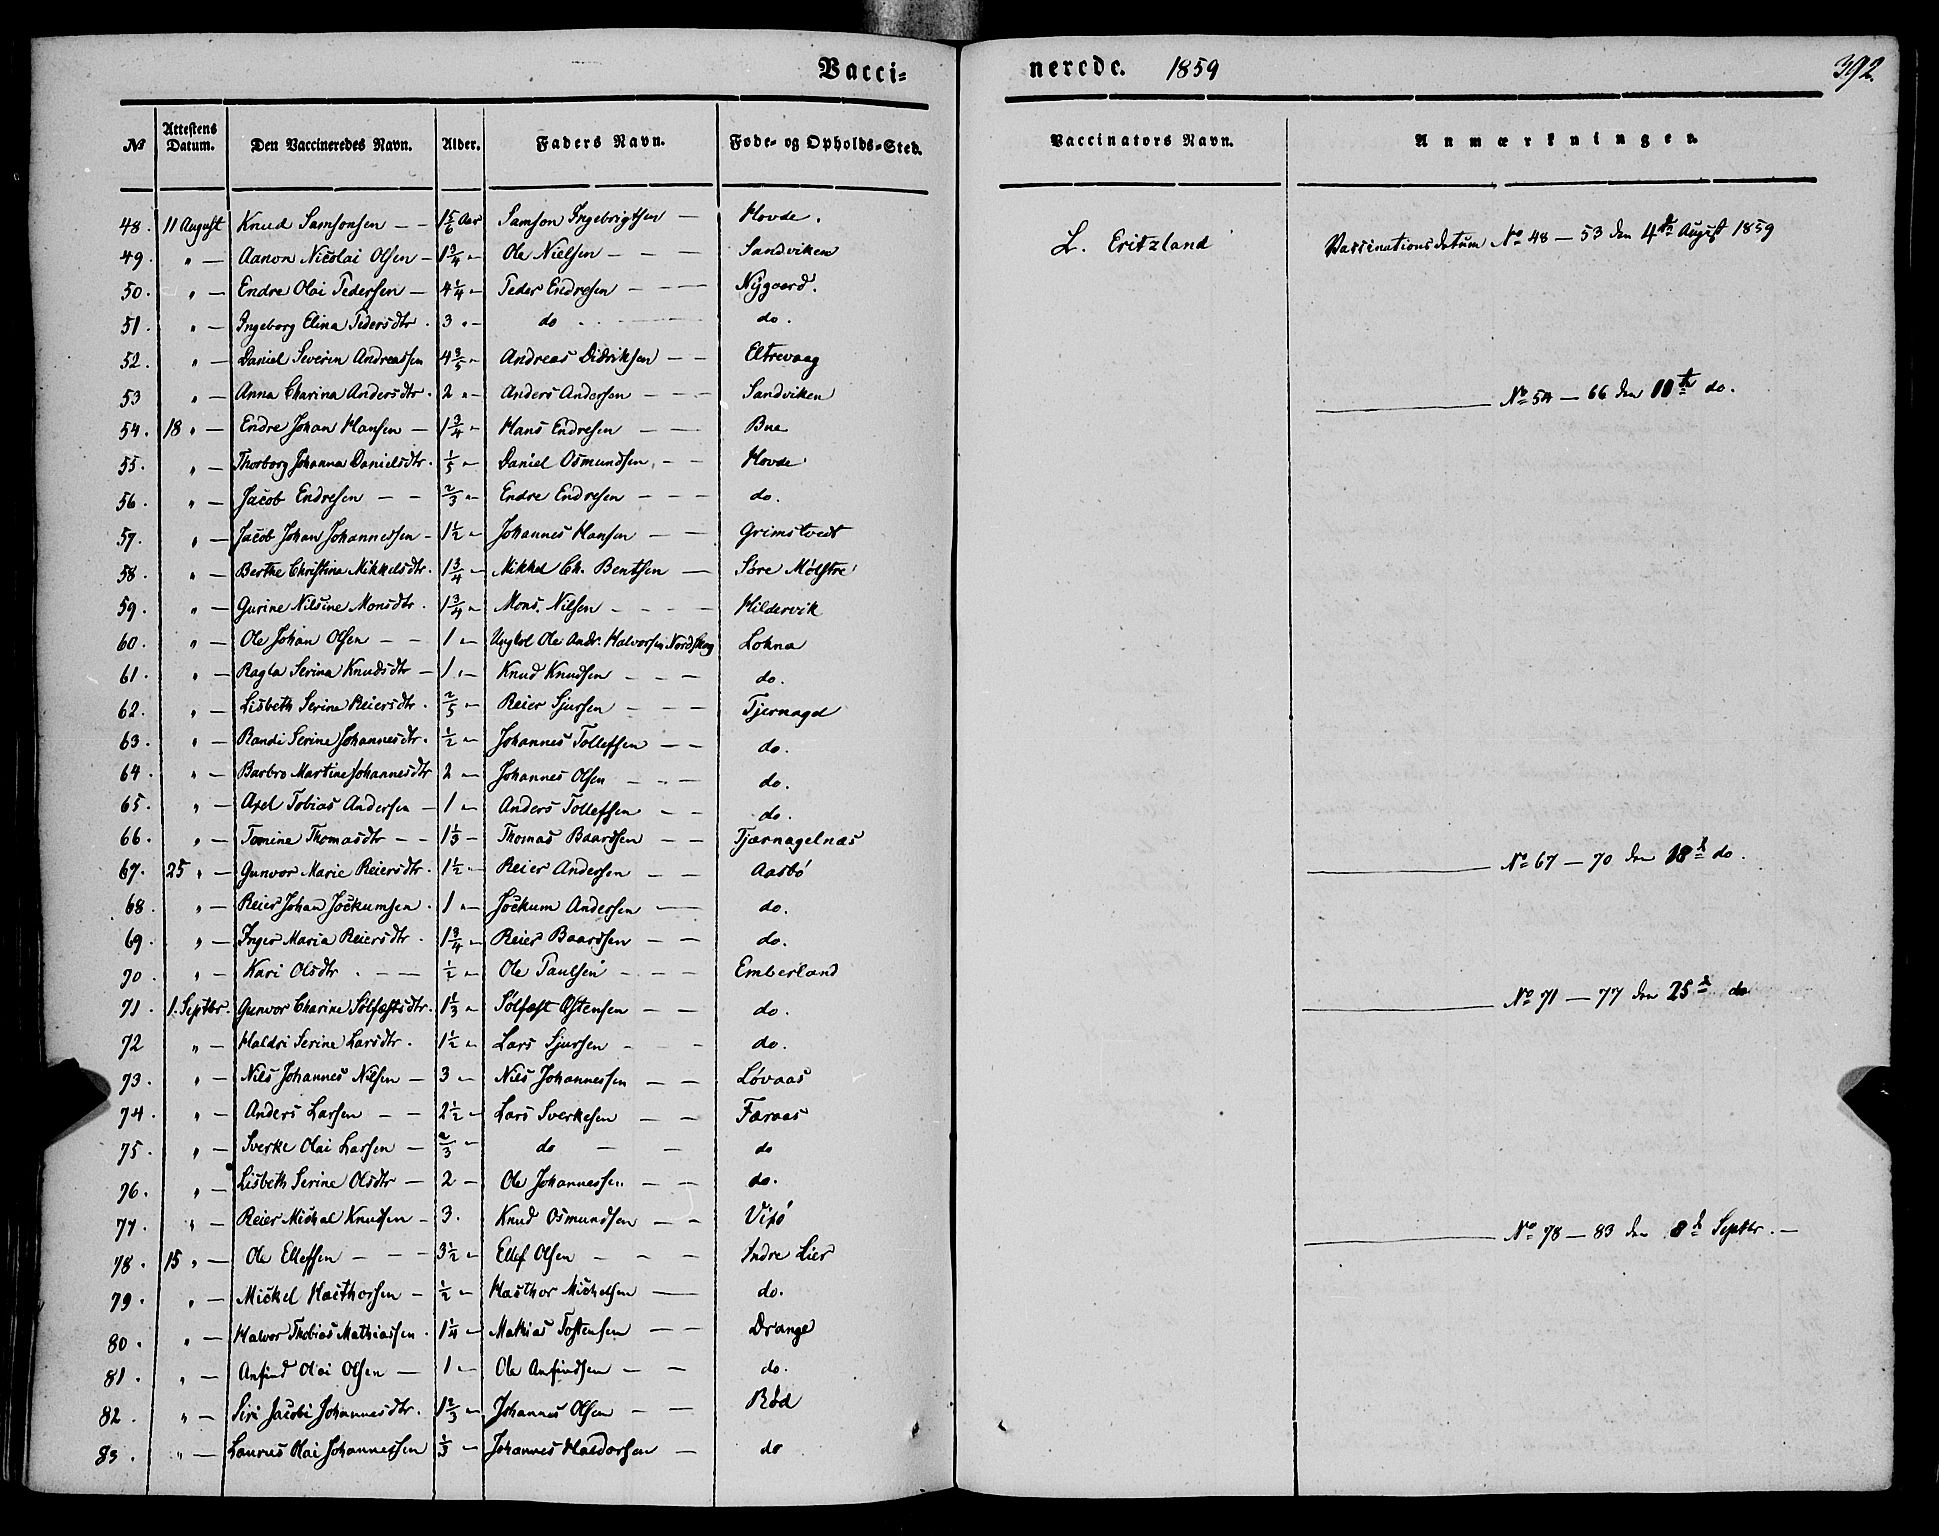 Vacci-
nerede. 1859
392.
No Attestens Datum. Den Vaccineredes Navn. Alder. Faders Navn. Føde- og Opholds-Sted. Vaccinators Navn. Anmærkninger.
48. 11 August Knud Samsonsen — — 1 5/6 Aar Samson Ingebrigtsen — Hovde. L. Eritzland Vaccinationsdatum No 48 — 53 den 4de August 1859
49. " — Aanon Nicolai Olsen — 1 3/4 " Ole Nielsen — — — Sandviken
50. " — Endre Olai Pedersen — 4 1/4 " Peder Endresen — — — Nygaard.
51. " — Ingeborg Elina Pedersdtr. 3 " — do do.
52. " — Daniel Severin Andreassen 4 3/5 " Andreas Didriksen — — Eltrevaag
53 " — Anna Charina Andersdtr. 2 " — Anders Andersen — — — Sandviken
54. 18 " — Endre Johan Hansen — 1 3/4 " Hans Endresen — — Bue — No 54 — 66 den 11te do.
55. " — Thorborg Johanna Danielsdtr. 1/5 " Daniel Osmundsen — — Hovde
56. " — Jacob Endresen — — 2/3 " Endre Endresen — — — do.
57. " — Jacob Johan Johannessen — 1 1/2 " Johannes Hansen — — Grimstvedt
58. " — Berthe Christina Mikkelsdtr. 1 3/4 " Mikkel Ch. Bentsen — Søre Mølstre
59. " — Gurine Nilsine Monsdtr. 1 3/4 " Mons Nilsen — — — Hildervik
60. " — Ole Johan Olsen — — 1 " Ungkel Ole Andr. Halvorsen Nordskog Lokna
61. " — Ragla Serina Knudsdtr — 1 " Knud Knudsen — — — do.
62. " — Lisbeth Serine Reiersdtr. 2/5 " Reier Sjursen — — — Tjernagel
63. " — Randi Serine Johannesdtr. 1/2 " Johannes Tollefsen — — do.
64. " — Barbro Martine Johannesdtr 2 " Johannes Olsen — — — do.
65. " — Axel Tobias Andersen — 1 " Anders Tollefsen — — do.
66. " — Tomine Thomasdtr — — 1 1/3 — Thomas Baardsen — — Tjærnagelnæs
67. 25 " — Gunvor Marie Reiersdtr. 1 1/2 " Reier Andersen — — Aasbø — No 67 — 70 den 18d do.
68. " — Reier Johan Jockumsen. 1 " Jockum Andersen — do.
69. " — Inger Maria Reiersdtr. 1 3/4 " Reier Baardsen — — do.
70. " — Kari Olsdtr. — — 1/2 " Ole Paulsen — — — Emberland
71. 1. Septbr. Gunvor Charine Sølfæstsdtr. 1 1/3 " Sølfæst Ostensen — — do. — No 71 — 77 den 25d do
72 " — Haldri Serine Larsdtr. 1 1/2 " Lars Sjursen — — do.
73. " — Nils Johannes Nilsen — 3 " Nils Johannessen — — Løvaas
74. " — Anders Larsen — — 2 1/2 " Lars Sverkesen — — Færaas
75. " — Sverke Olai Larsen — 2/3 " do — — do
76. " — Lisbeth Serine Olsdtr — 2 — Ole Johannessen — — do.
77. " — Reier Michal Knudsen — 3. Knud Osmundsen — — Vixø
78. 15 " — Ole Ellefsen — — — 3 1/2 " Ellef Olsen — — — Indre Lier — No 78 — 83 den 8d Septbr. —
79. " — Mickel Hasthorsen — 1/2 " Hasthor Michelsen — do.
80. " — Halvor Thobias Mathiassen. 1 1/4 " Mathias Tostensen — — Drange
81. " — Anfind Olai Olsen — 1 " Ole Anfindsen — — do.
82. " — Siri Jacobi Johannesdtr. 1 2/3 " Johannes Olsen — — Rød
83. " — Laurus Olai Johannessen 1/3 " Johannes Haldorsen — do